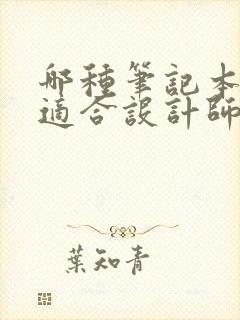 哪種筆記本
適合設計師
葉知青